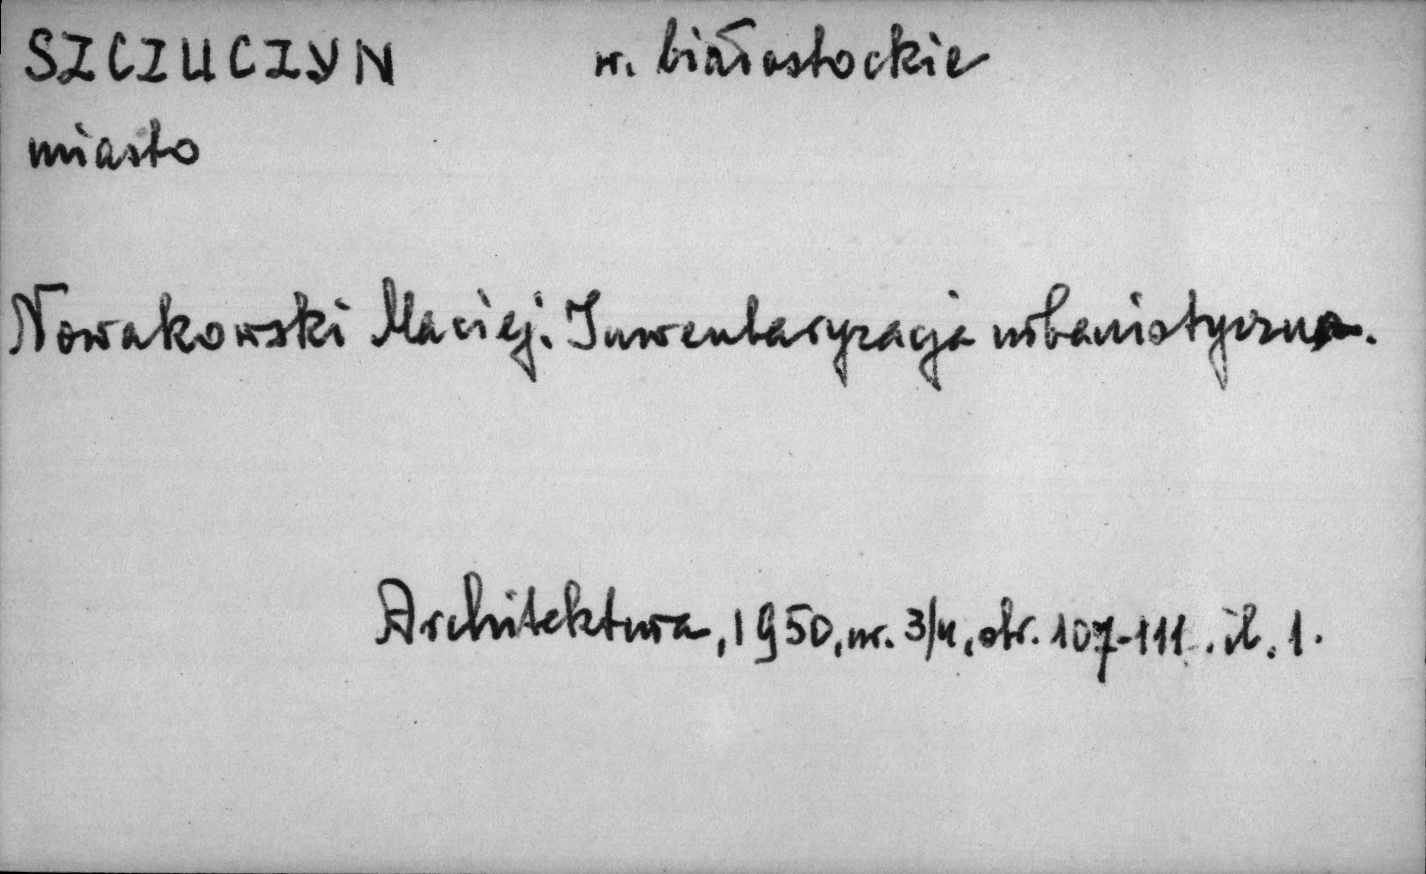 SZCZUCZYN w. białostockie
miasto
Nowakowski Maciej. Inwentaryzacja urbanistyczna.
Architektura, 1950, nr. 3/4, str. 107-111. il. 1.